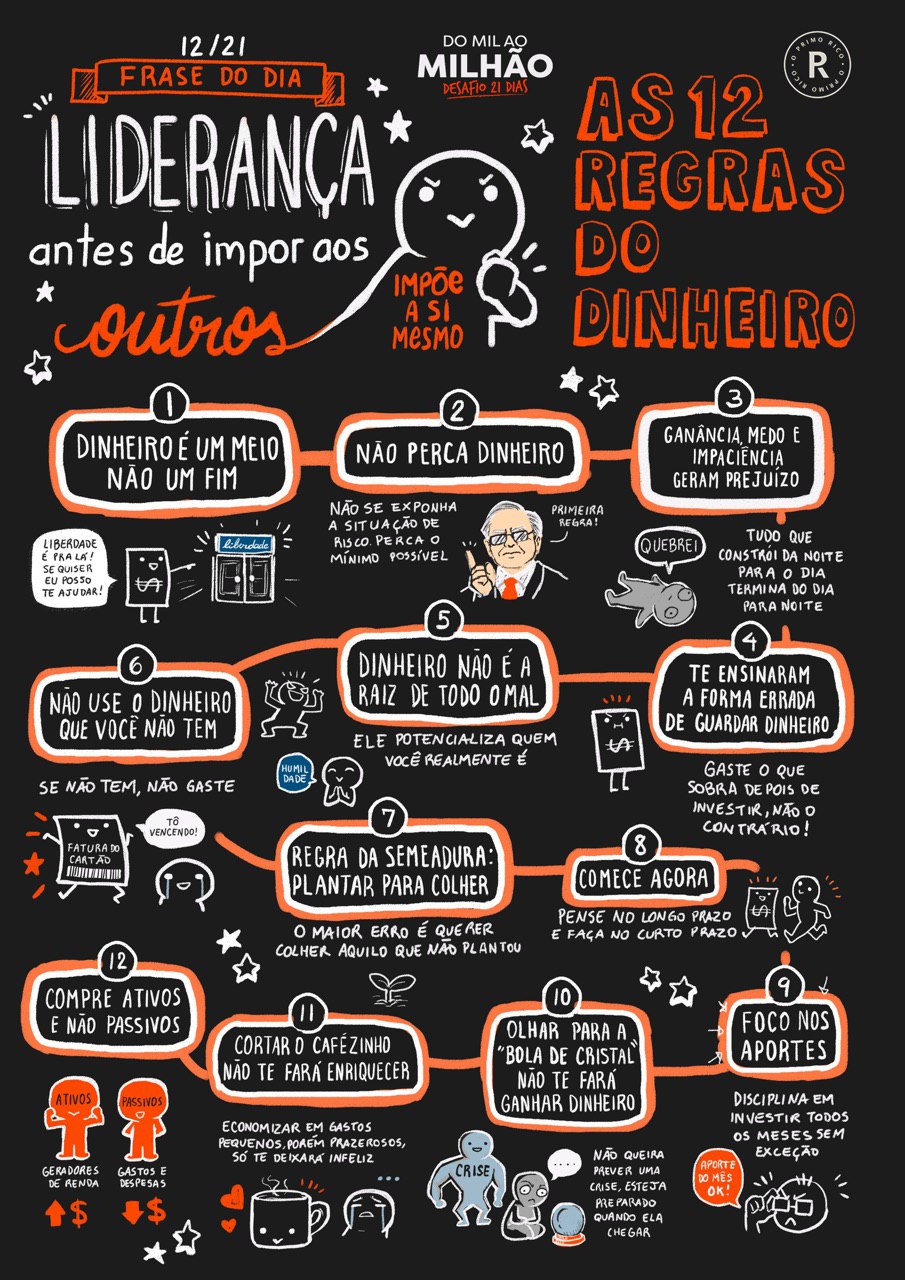 12/21
FRASE DO DIA
LIDERANÇA
antes de impor aos
outros
IMPÕE
A SI
MESMO
DO MIL AO
MILHÃO
DESAFIO 21 DIAS
O PRIMO RICO • O PRIMO RICO •
R
AS 12
REGRAS
DO
DINHEIRO
1
DINHEIRO É UM MEIO
NÃO UM FIM
LIBERDADE
É PRA LÁ!
SE QUISER
EU POSSO
TE AJUDAR!
$
liberdade
2
NÃO PERCA DINHEIRO
NÃO SE EXPONHA
A SITUAÇÃO DE
RISCO. PERCA O
MÍNIMO POSSÍVEL
PRIMEIRA
REGRA!
3
GANÂNCIA, MEDO E
IMPACIÊNCIA
GERAM PREJUÍZO
QUEBREI
TUDO QUE
CONSTRÓI DA NOITE
PARA O DIA
TERMINA DO DIA
PARA NOITE
4
TE ENSINARAM
A FORMA ERRADA
DE GUARDAR DINHEIRO
$
GASTE O QUE
SOBRA DEPOIS DE
INVESTIR, NÃO O
CONTRÁRIO!
5
DINHEIRO NÃO É A
RAIZ DE TODO O MAL
ELE POTENCIALIZA QUEM
VOCÊ REALMENTE É
HUMIL
DADE
6
NÃO USE O DINHEIRO
QUE VOCÊ NÃO TEM
SE NÃO TEM, NÃO GASTE
FATURA DO
CARTÃO
TÔ
VENCENDO!
7
REGRA DA SEMEADURA:
PLANTAR PARA COLHER
O MAIOR ERRO É QUERER
COLHER AQUILO QUE NÃO PLANTOU
8
COMECE AGORA
PENSE NO LONGO PRAZO
E FAÇA NO CURTO PRAZO
$
9
FOCO NOS
APORTES
DISCIPLINA EM
INVESTIR TODOS
OS MESES SEM
EXCEÇÃO
APORTE
DO MÊS
OK!
10
OLHAR PARA A
"BOLA DE CRISTAL"
NÃO TE FARÁ
GANHAR DINHEIRO
CRISE
....
NÃO QUEIRA
PREVER UMA
CRISE, ESTEJA
PREPARADO
QUANDO ELA
CHEGAR
11
CORTAR O CAFÉZINHO
NÃO TE FARÁ ENRIQUECER
ECONOMIZAR EM GASTOS
PEQUENOS, PORÉM PRAZEROSOS,
SÓ TE DEIXARÁ INFELIZ
...
12
COMPRE ATIVOS
E NÃO PASSIVOS
ATIVOS
GERADORES
DE RENDA
$
PASSIVOS
GASTOS E
DESPESAS
$